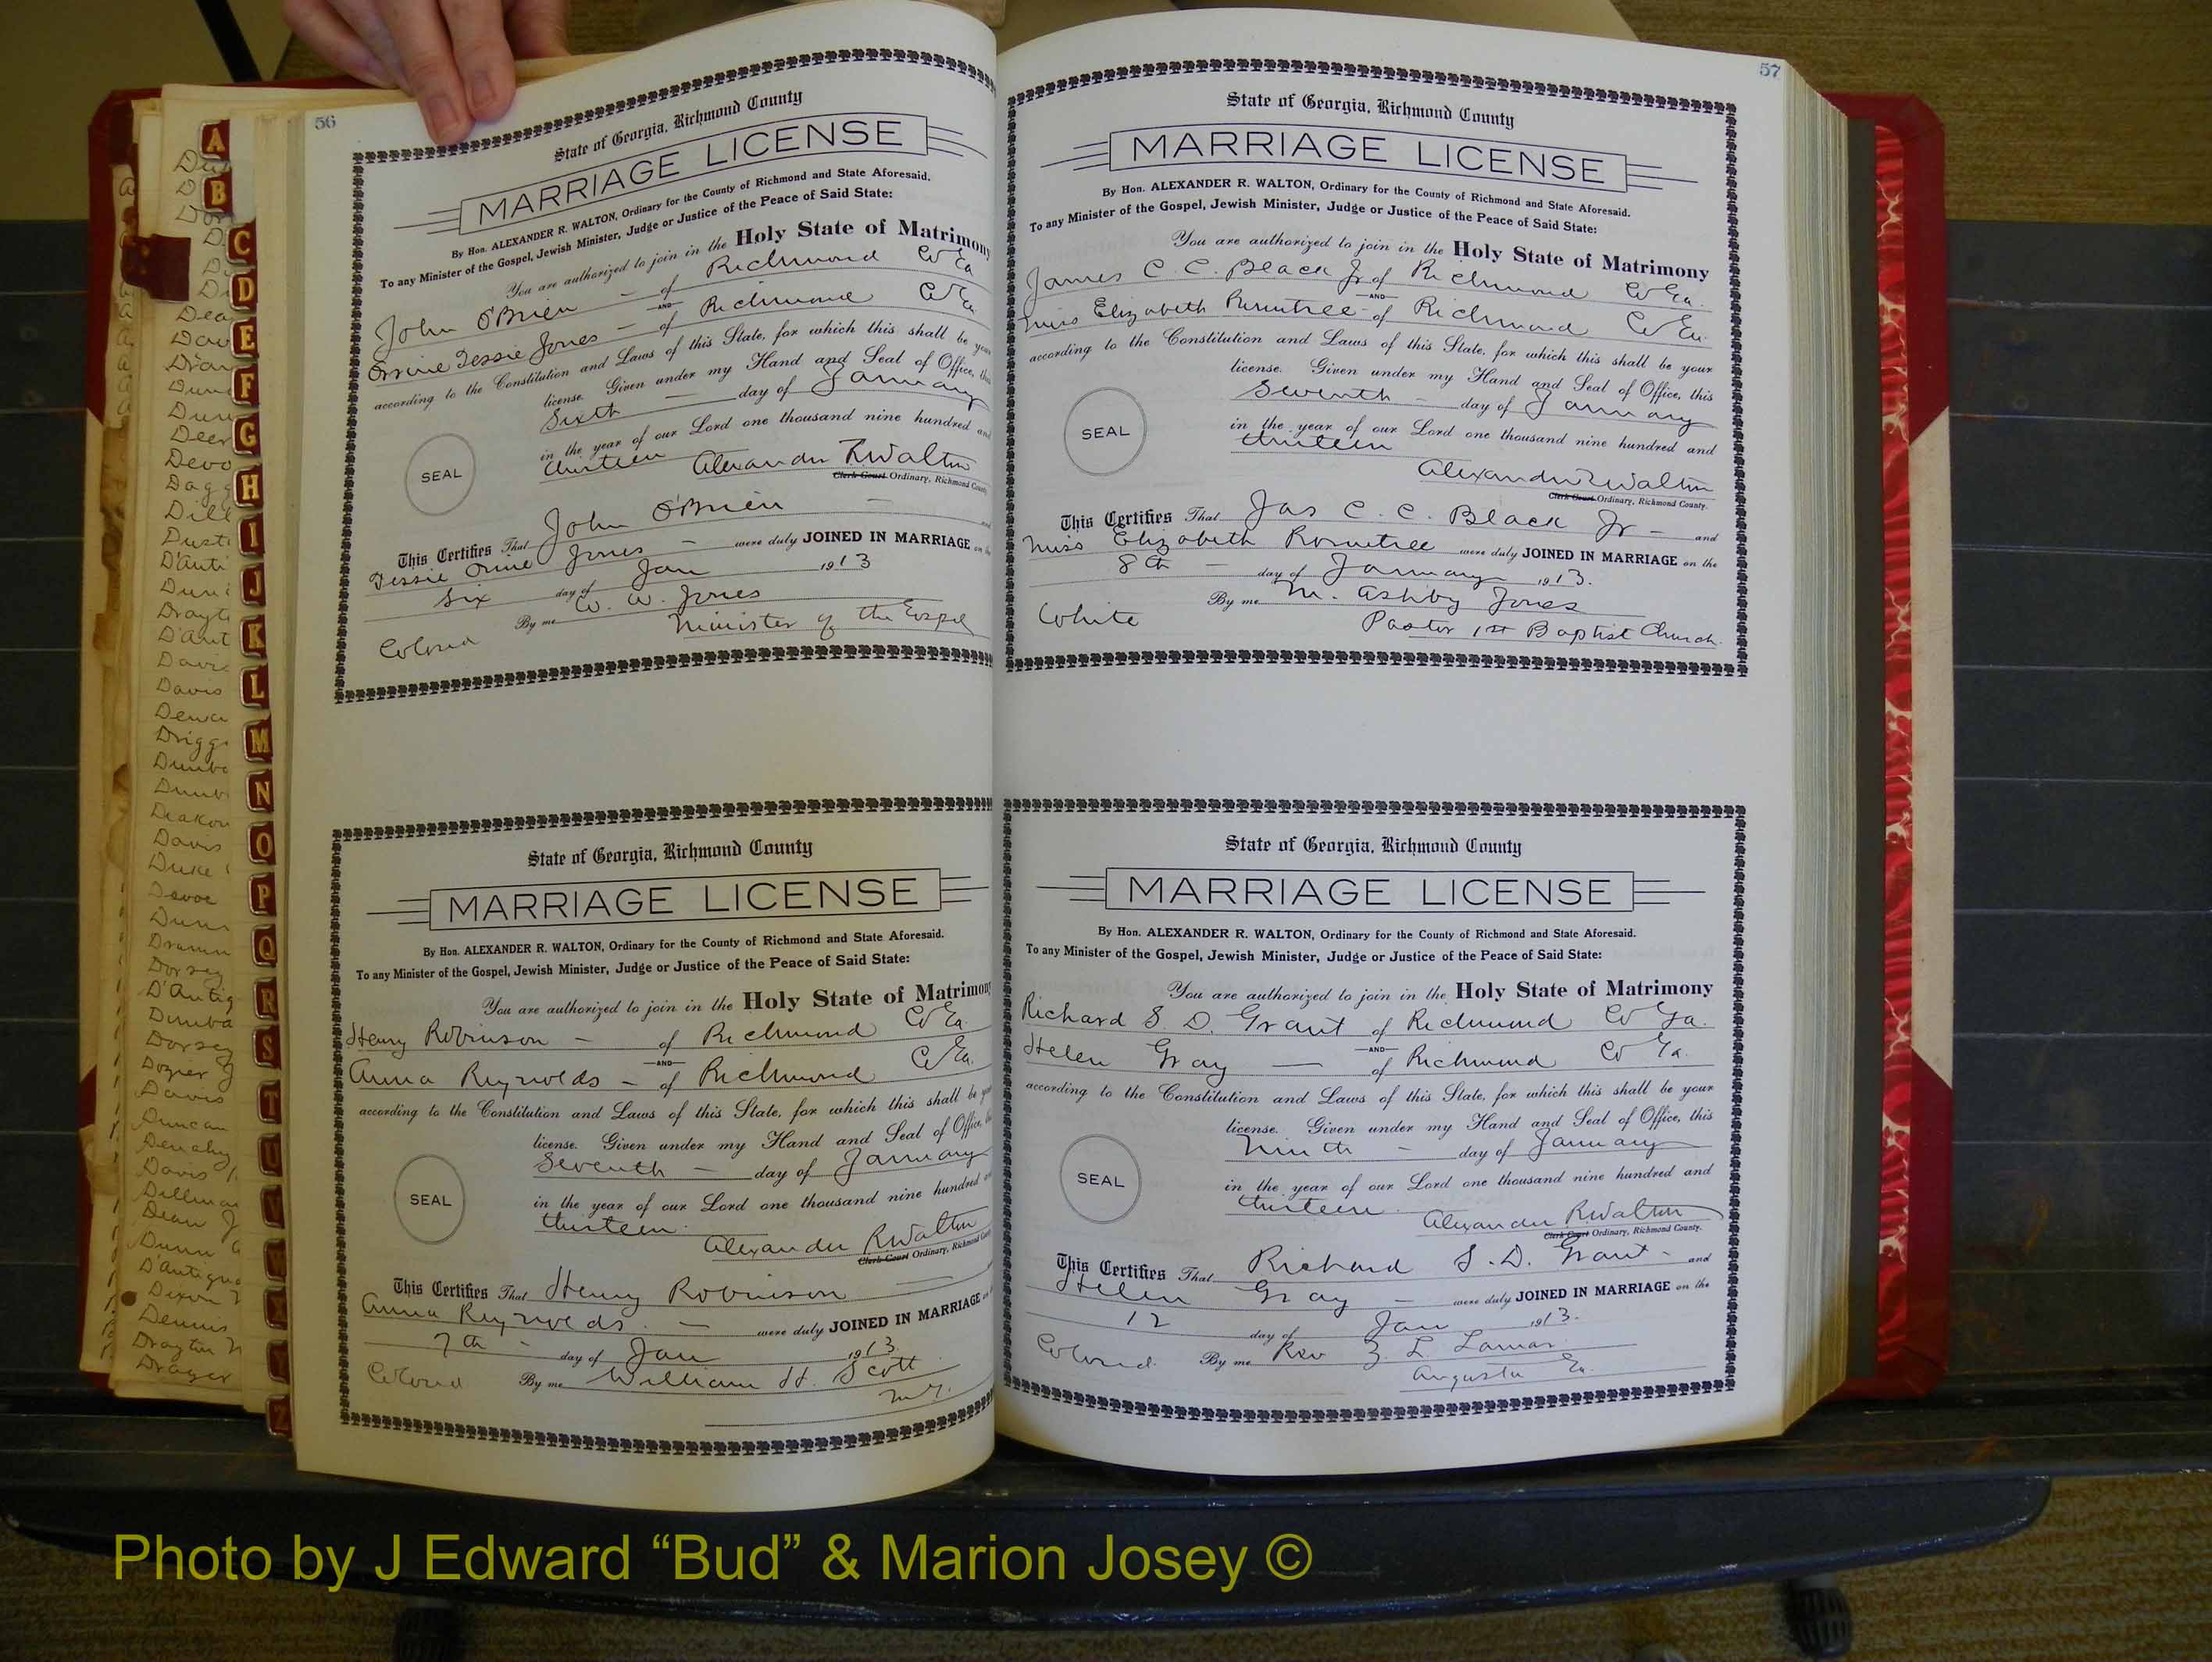 56
State of Georgia, Richmond County
MARRIAGE LICENSE
By Hon. ALEXANDER R. WALTON, Ordinary for the County of Richmond and State Aforesaid.
To any Minister of the Gospel, Jewish Minister, Judge or Justice of the Peace of Said State:
You are authorized to join in the Holy State of Matrimony
John O'Brien — of Richmond Co Ga
AND
Orrine Tessie Jones — of Richmond Co Ga
according to the Constitution and Laws of this State, for which this shall be your
license. Given under my Hand and Seal of Office, this
Sixth — day of January
in the year of our Lord one thousand nine hundred and
thirteen Alexander R Walton
SEAL
Clerk Court Ordinary, Richmond County
This Certifies That John O'Brien — and
Tessie Jones — were duly JOINED IN MARRIAGE on the
Six day of Jan 1913
By me W. W. Jones
Colored Minister of the Gospel
State of Georgia, Richmond County
MARRIAGE LICENSE
By Hon. ALEXANDER R. WALTON, Ordinary for the County of Richmond and State Aforesaid.
To any Minister of the Gospel, Jewish Minister, Judge or Justice of the Peace of Said State:
You are authorized to join in the Holy State of Matrimony
Henry Robinson — of Richmond Co Ga.
AND
Anna Reynolds — of Richmond Co Ga.
according to the Constitution and Laws of this State, for which this shall be
license. Given under my Hand and Seal of Office,
Seventh — day of January
in the year of our Lord one thousand nine hundred
thirteen.
SEAL
Alexander R Walton
Clerk Court Ordinary, Richmond
This Certifies That Henry Robinson
Anna Reynolds. — were duly JOINED IN MARRIAGE
7th — day of Jan 1913.
Colored By me William H. Scott
M.G.
57
State of Georgia, Richmond County
MARRIAGE LICENSE
By Hon. ALEXANDER R. WALTON, Ordinary for the County of Richmond and State Aforesaid.
To any Minister of the Gospel, Jewish Minister, Judge or Justice of the Peace of Said State:
You are authorized to join in the Holy State of Matrimony
James C. C. Black Jr of Richmond Co Ga.
AND
Miss Elizabeth Rountree — of Richmond Co Ga.
according to the Constitution and Laws of this State, for which this shall be your
license. Given under my Hand and Seal of Office, this
Seventh — day of January
in the year of our Lord one thousand nine hundred and
thirteen
SEAL
Alexander R Walton
Clerk Court Ordinary, Richmond County.
This Certifies That Jas C. C. Black Jr — and
Miss Elizabeth Rountree were duly JOINED IN MARRIAGE on the
8th — day of January 1913.
By me M. Ashby Jones
White Pastor 1st Baptist Church.
State of Georgia, Richmond County
MARRIAGE LICENSE
By Hon. ALEXANDER R. WALTON, Ordinary for the County of Richmond and State Aforesaid.
To any Minister of the Gospel, Jewish Minister, Judge or Justice of the Peace of Said State:
You are authorized to join in the Holy State of Matrimony
Richard S. D. Grant of Richmond Co Ga.
AND
Helen Gray — of Richmond Co Ga.
according to the Constitution and Laws of this State, for which this shall be your
license. Given under my Hand and Seal of Office, this
Ninth — day of January
in the year of our Lord one thousand nine hundred and
thirteen.
SEAL
Alexander R Walton
Clerk Court Ordinary, Richmond County.
This Certifies That Richard S. D. Grant — and
Helen Gray — were duly JOINED IN MARRIAGE on the
12 day of Jan 1913.
Colored. By me Rev Z. L Lamar
Augusta Ga.
A
B
C
D
E
F
G
H
I
J
K
L
M
N
O
P
Q
R
S
T
U
V
W
X
Y
Z
Davis
Dorsey
Davis
Duncan
Davis
Dennis
Photo by J Edward “Bud” & Marion Josey ©